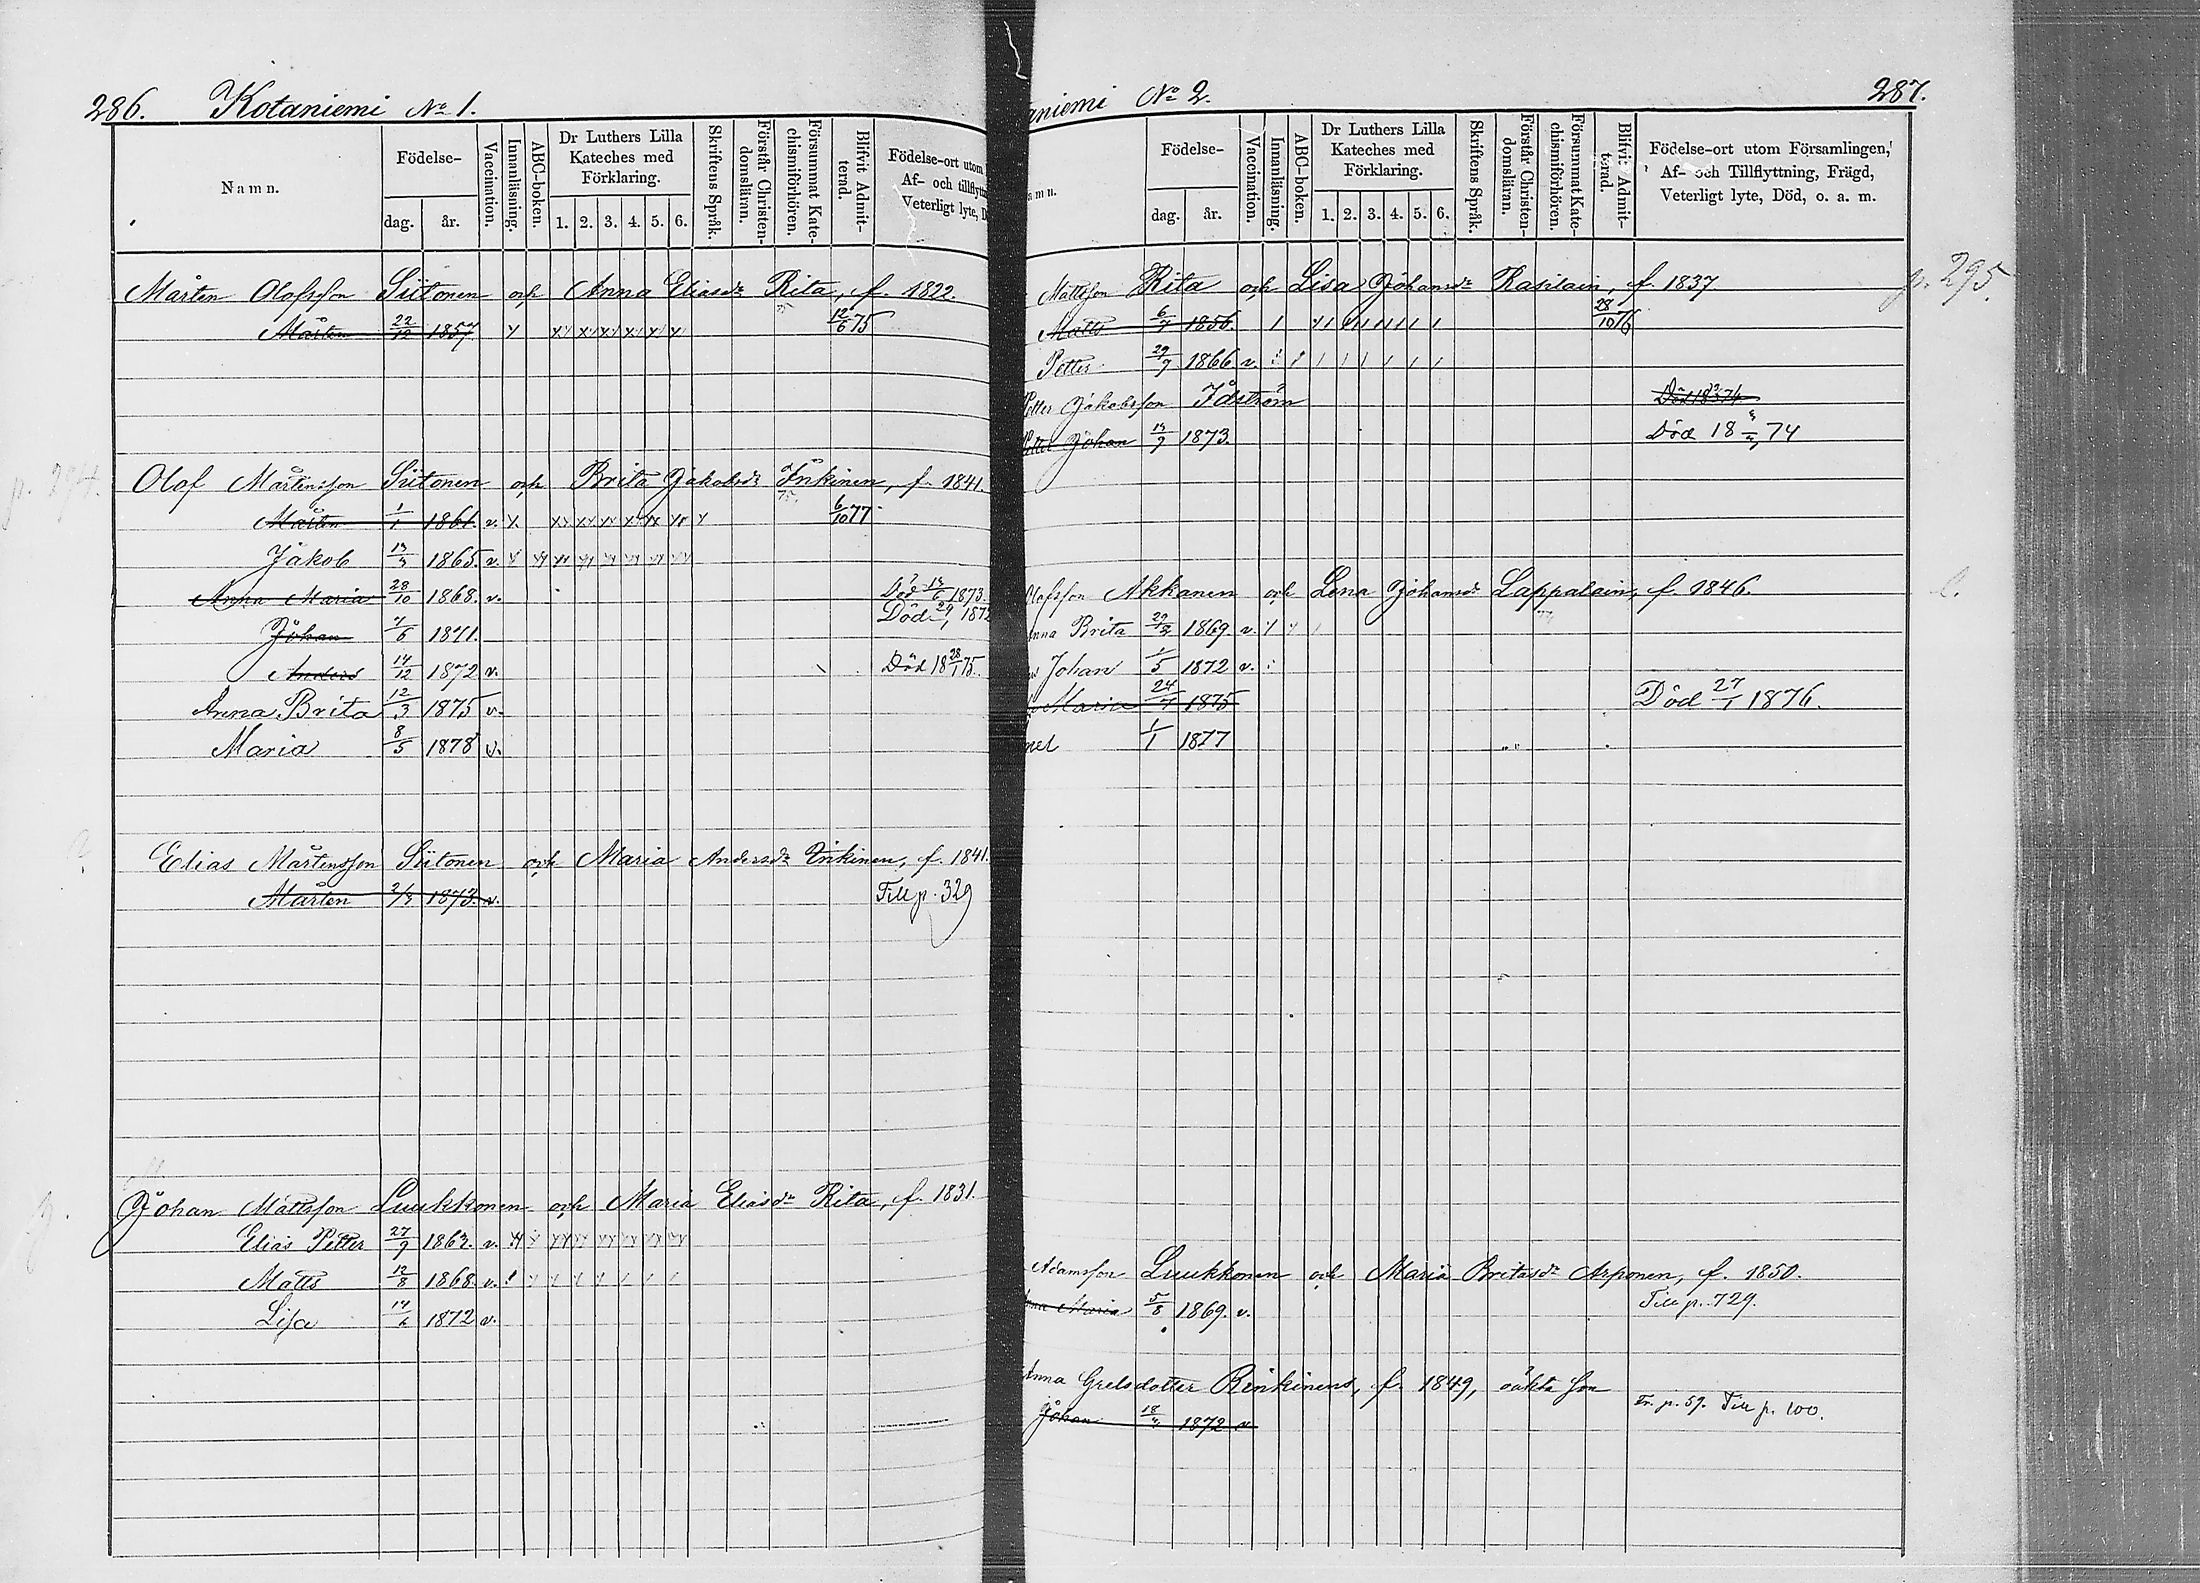 286. Kotaniemi No 1.
Namn.
Födelse-
dag.
år.
Vaccination.
Innanläsning.
ABC-boken.
Dr Luthers Lilla
Kateches med
Förklaring.
1. 2. 3. 4. 5. 6.
Skriftens Språk.
Förstår Christen-
domsläran.
Försummat Kate-
chismiförhören.
Blifvit Admit-
terad.
Födelse-ort utom
Af- och tillflytt
Veterligt lyte, D
Mårten Olofsson Siitonen och Anna Eliasdr Rita, f. 1822.
Mårten 22/12 1857 12/6 75
Olof Mårtensson Siitonen och Brita Jakobsdr Inkinen, f. 1841.
Mårten 1/1 1861. v. 6/10 77
Jakob 13/3 1865. v.
Anna Maria 28/10 1868. v. Död 13/6 1873.
Johan 7/6 1871. Död
Anders 14/12 1872 v. Död 18 28/1 75.
Anna Brita 12/3 1875 v.
Maria 8/5 1878 v.
Elias Mårtensson Siitonen och Maria Andersdr Inkinen, f. 1841.
Mårten 2/3 1873. v. Till p. 329
Johan Mattsson Luukkonen och Maria Eliasdr Rita, f. 1831.
Elias Petter 27/9 1863. v.
Matts 12/8 1868. v.
Lisa 1872 v.
aniemi No 2. 287.
amn.
Födelse-
dag.
år.
Vaccination.
Innanläsning.
ABC-boken.
Dr Luthers Lilla
Kateches med
Förklaring.
1. 2. 3. 4. 5. 6.
Skriftens Språk.
Förstår Christen-
domsläran.
Försummat Kate-
chismiförhören.
Blifvit Admit-
terad.
Födelse-ort utom Församlingen,
Af- och Tillflyttning, Frägd,
Veterligt lyte, Död, o. a. m.
Mattsson Rita och Lisa Johansdr Rasilain, f. 1837 p. 295.
Matts 6/7 1856. 28/10 76
Petter 29/7 1866 v.
Petter Jakobsson Idström
Petter Johan 13/9 1873. Död 18 74
Olofsson Akkanen och Lena Johansdr Lappalain, f. 1846.
nna Brita 29/12 1869 v.
Johan 1/5 1872 v.
Maria 24/7 1875 Död 27/1 1876.
nel 1/1 1877
Adamsson Luukkonen och Maria Britasdr Arponen, f. 1850.
nna Maria 5/8 1869. v. Till p. 729.
Anna Grelsdotter Rinkinen, f. 1849, oäkta son
Johan 1872 v Fr. p. 59. Till p. 100.